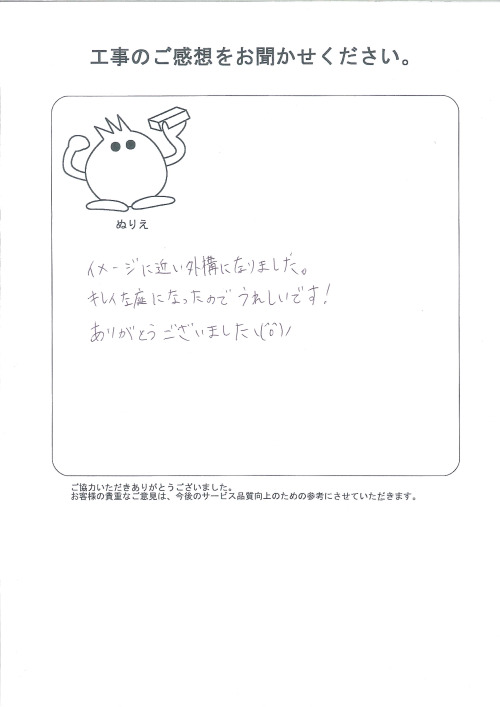 工事のご感想をお聞かせください。
ぬりえ
イメージに近い外構になりました。
キレイな庭になったのでうれしいです!
ありがとうございましたヽ(^o^)ノ
ご協力いただきありがとうございました。
お客様の貴重なご意見は、今後のサービス品質向上のための参考にさせていただきます。